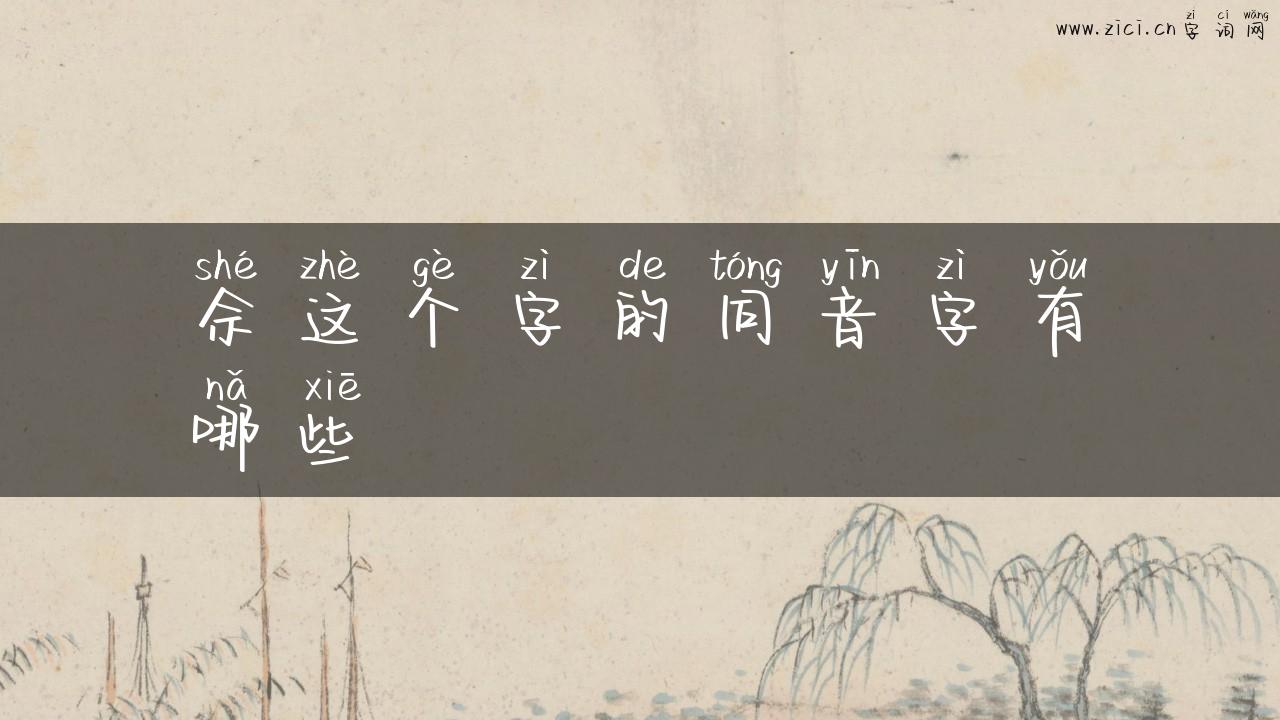 zì cí wǎng
www.zici.cn 字词网
shé zhè gè zì de tóng yīn zì yǒu
佘这个字的同音字有
nǎ xiē
哪些